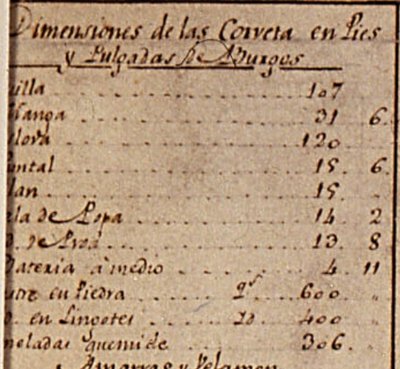 Dimensiones de las Corveta en Pies
y Pulgadas de Burgos
uilla 107
Manga 31 6
slora 120
untal 15 6
lan 15
la de Popa 14 2
de Proa 13 8
Bateria à medio 4 11
stre en Piedra qs 600
en Lingotes 400
neladas que mide 306
Amarras y Velamen